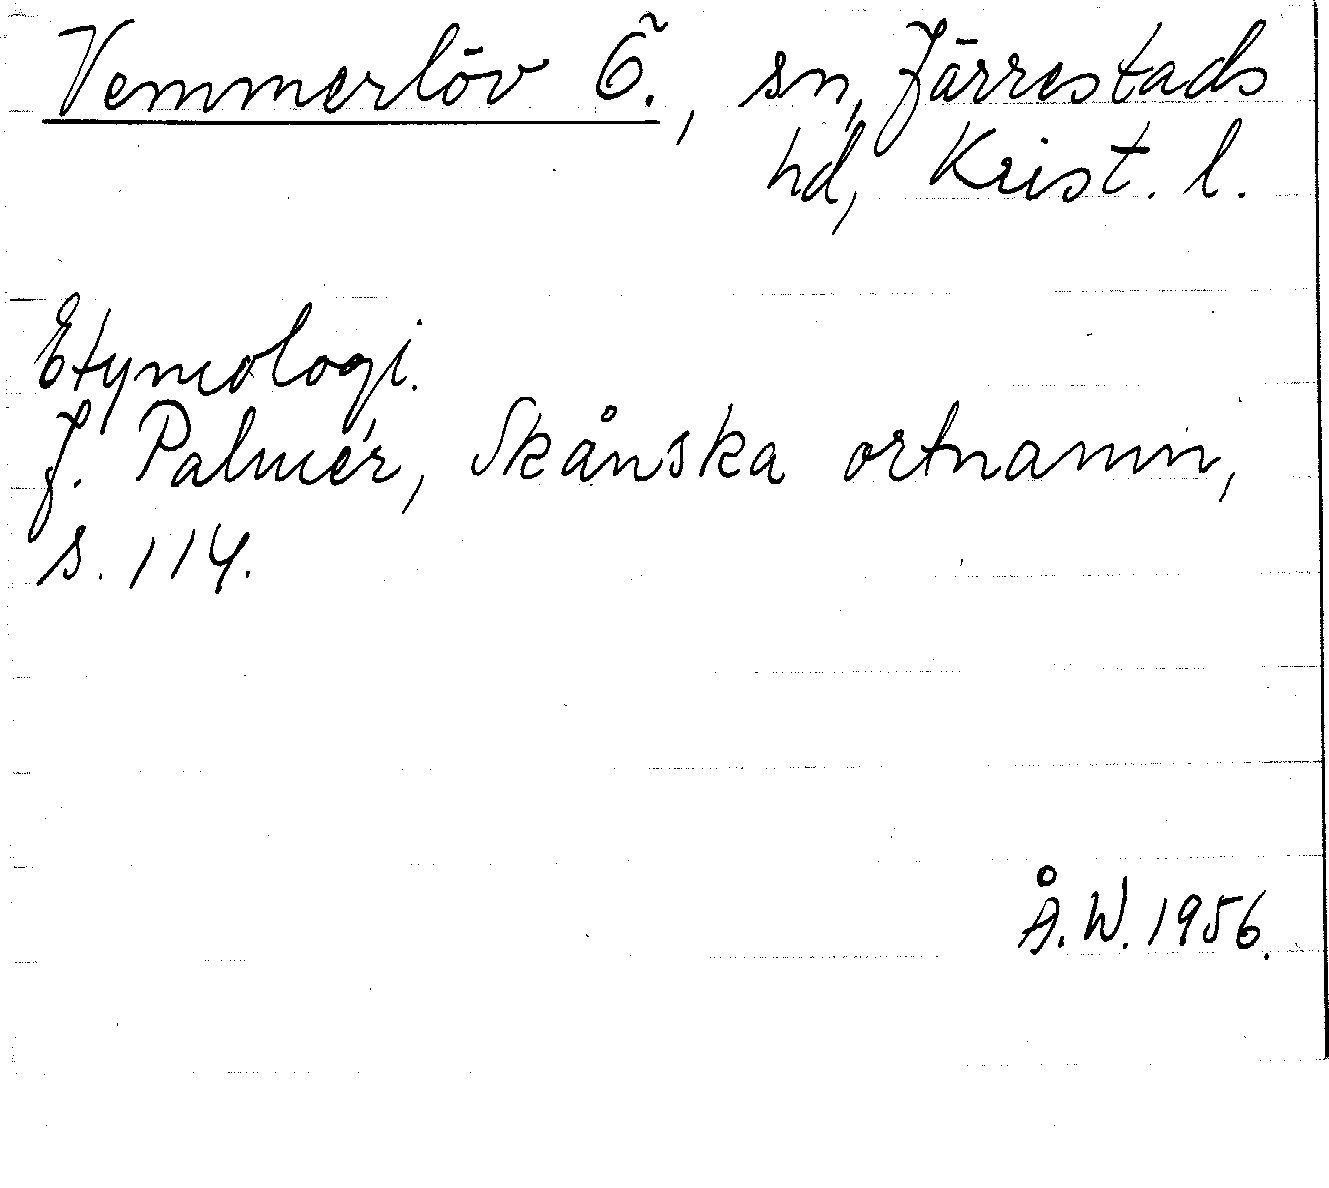 Vemmerlöv Ö., sn, Järrestads
hd, Krist. l.
Etymologi.
J. Palmér, Skånska ortnamn,
s. 114.
Å. W. 1956.